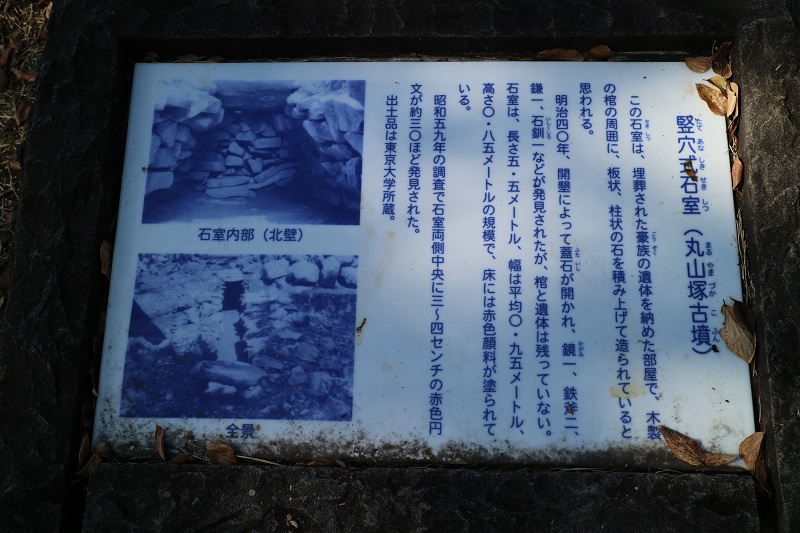 竪穴式石室（丸山塚古墳）
たて あな しき せき しつ まる やま づか こ ふん
この石室は、埋葬された豪族の遺体を納めた部屋で、木製
せき しつ ごう ぞく
の棺の周囲に、板状、柱状の石を積み上げて造られていると
思われる。
明治四〇年、開墾によって蓋石が開かれ、鏡一、鉄斧二、
ふたいし かがみ
鎌一、石釧一などが発見されたが、棺と遺体は残っていない。
いしくしろ
石室は、長さ五・五メートル、幅は平均〇・九五メートル、
高さ〇・八五メートルの規模で、床には赤色顔料が塗られて
いる。
昭和五九年の調査で石室両側中央に三〜四センチの赤色円
文が約三〇ほど発見された。
出土品は東京大学所蔵。
石室内部（北壁）
全景